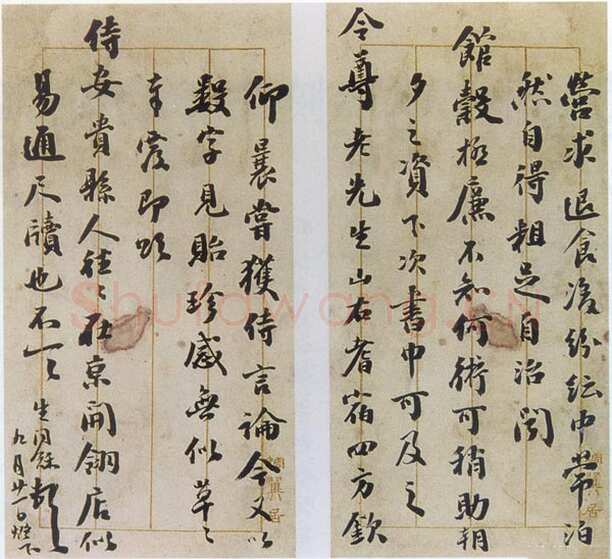 營求退食後紛紜中常泊
然自得粗足自治聞
館穀極廉不知何術可稍助朝
夕之資下次書中可及之
令尊老先生山右耆宿四方欽
仰曩嘗獲侍言論今又以
數字見貽珍感無似草〻
幸即頌
侍安貴縣人往〻在京開翎店似
易通尺牘也不一一 生同龢頓首
九月廿一日燈下
Shufawang.cn